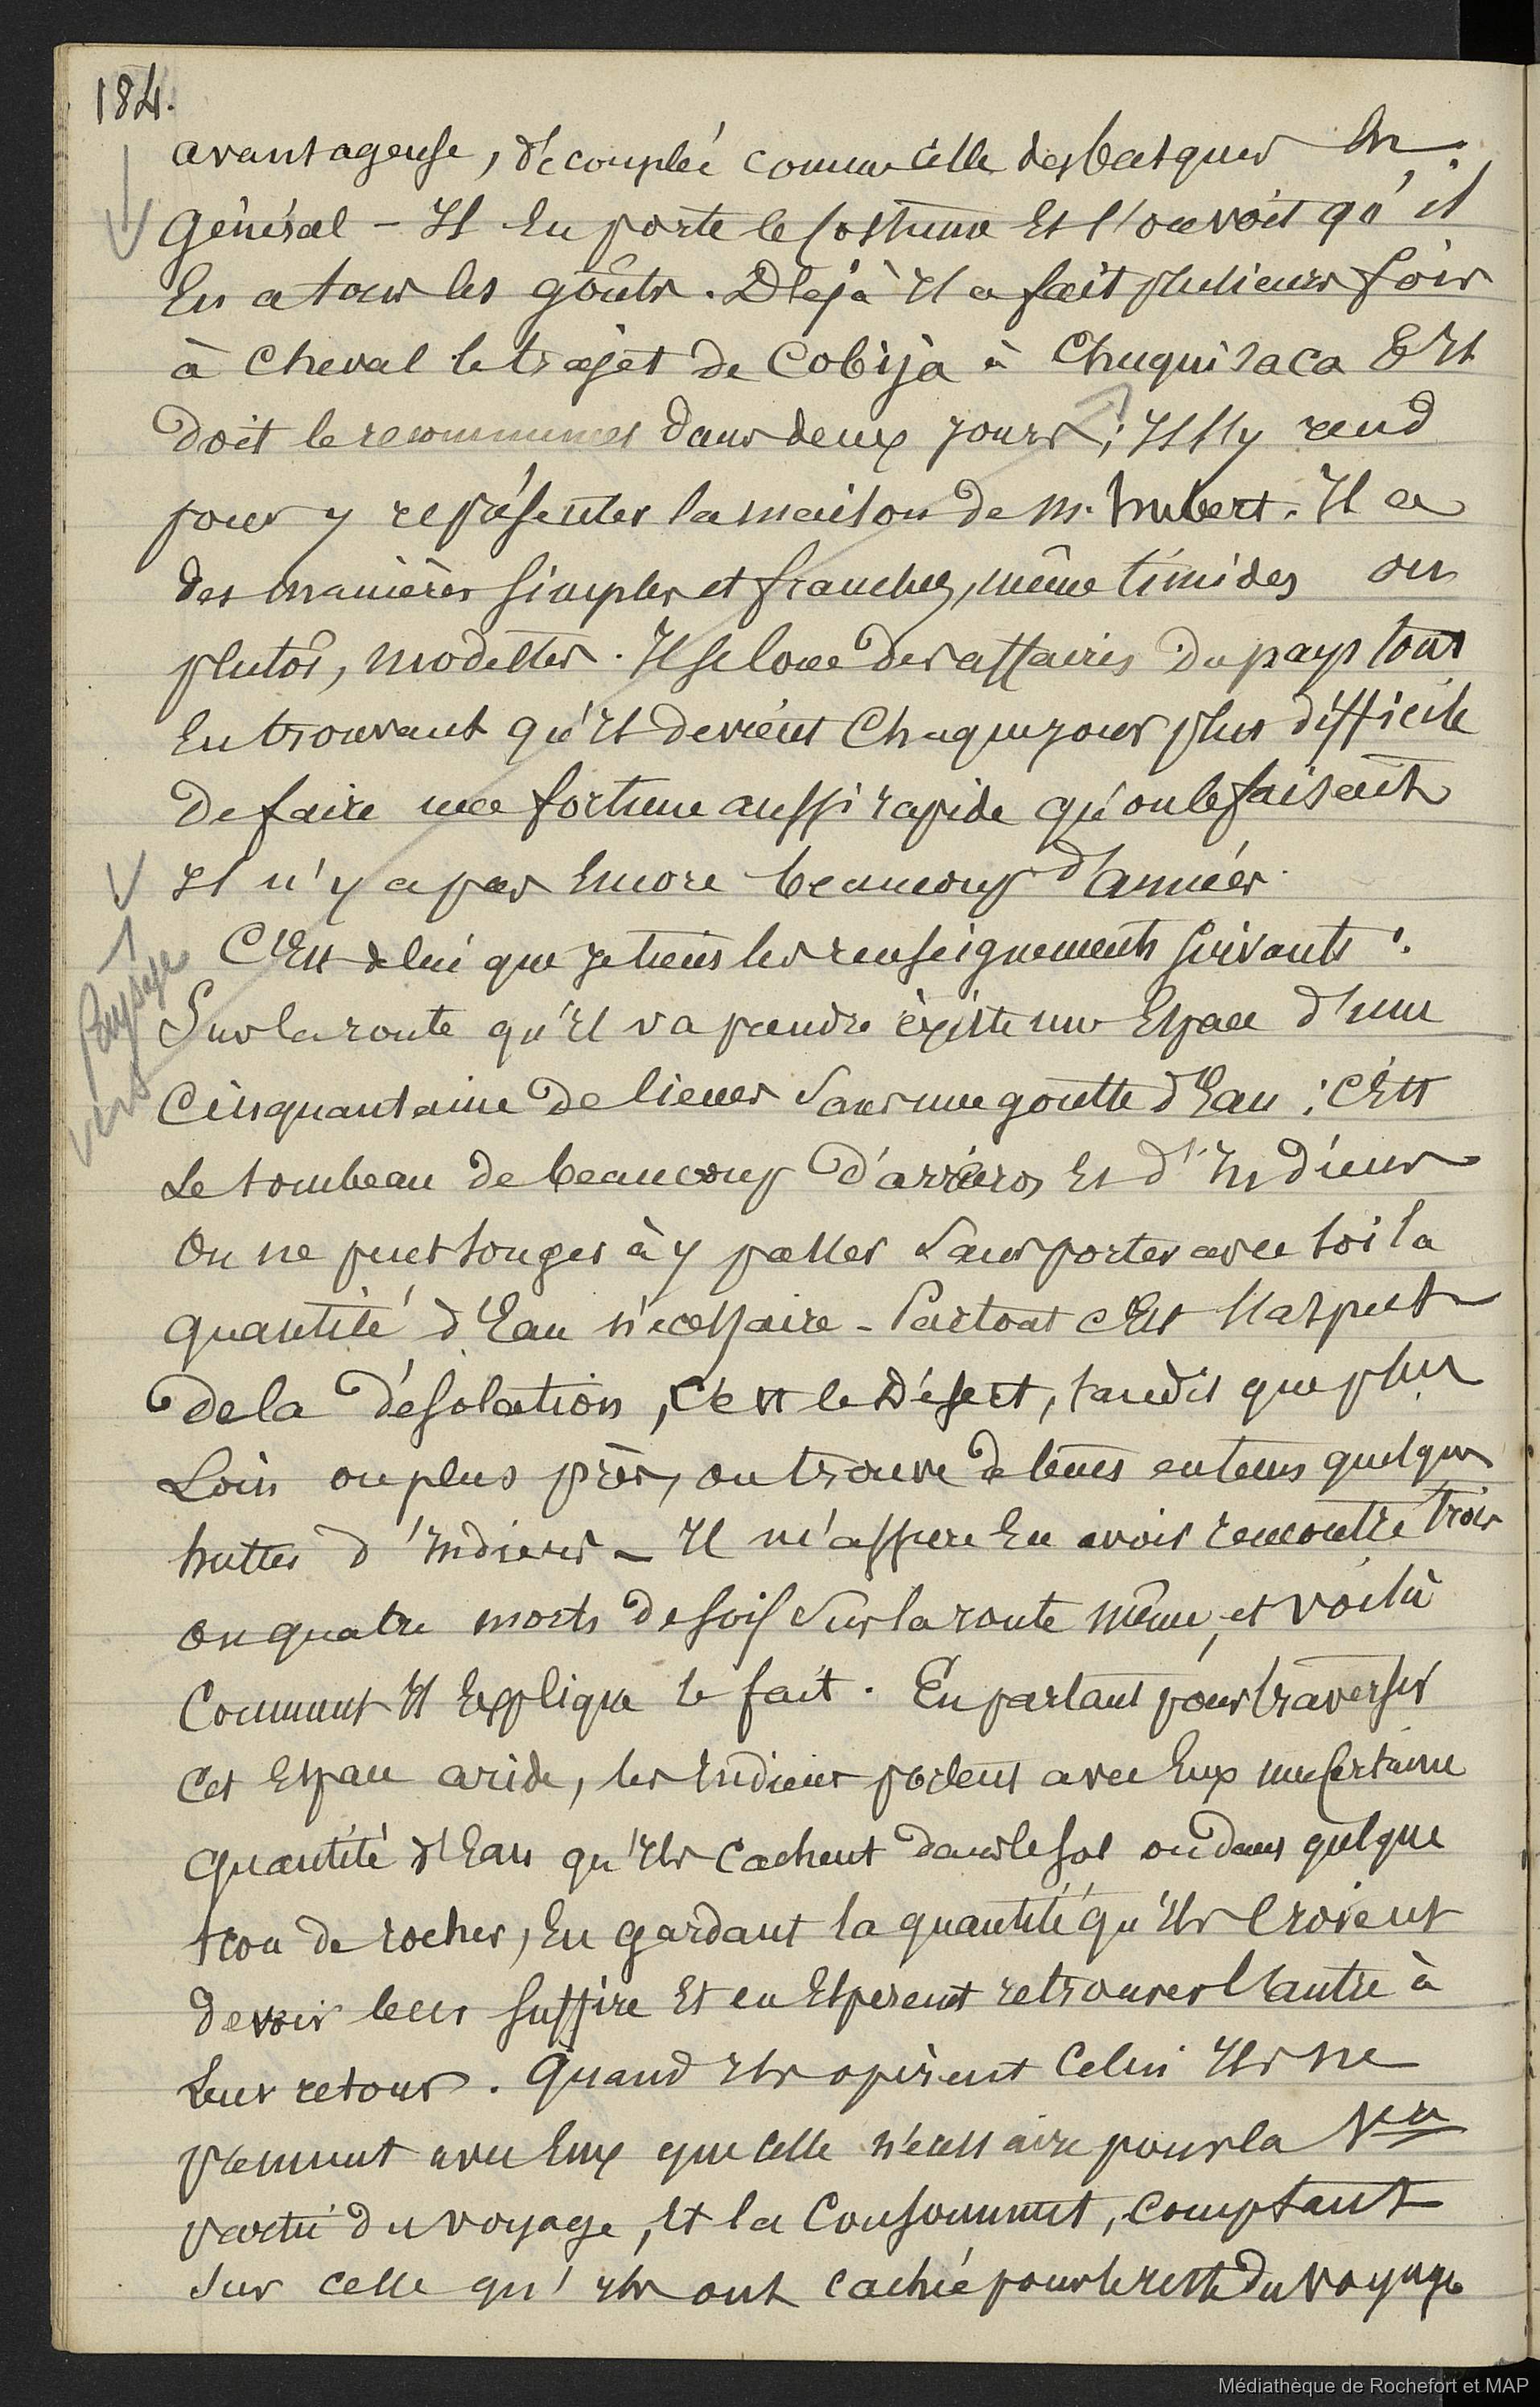 184.
avantageuse, découplée comme celle des basques en
Général - Il en porte le costume et l'on voit qu'il
en a tous les goûts. Déjà il a fait plusieurs fois
à cheval le trajet de Cobija à Chuquisaca & Il
doit le recommencer dans deux jours ; Il s'y rend
pour y représenter la maison de M. hubert. Il a
des manières simples et franches, même timides ou
plutôt, modestes. Il se loue des affaires du pays tout
en trouvant qu'il devient chaque jour plus difficile
de faire une fortune aussi rapide qu'on le faisait
il n'y a pas encore beaucoup d'années.
C'est de lui que je tiens les renseignements suivants :
Sur la route qu'il va prendre éxiste un espace d'une
Cinquantaine de lieues sans une goutte d'Eau ; c'est
Le tombeau de beaucoup d'arriéros et d'Indiens
On ne peut songer à y passer sans porter avec soi la
quantité d'Eau nécessaire - Partout c'est l'aspect
de la désolation, c'est le Désert, tandis que plus
Loin ou plus près, on trouve de tems en tems quelques
huttes d'Indiens - Il m'assure en avoir rencontré trois
ou quatre morts de soif sur la route même, et voilà
Comment il explique le fait. En partant pour traverser
Cet espace aride, les Indiens portent avec eux une certaine
quantité d'Eau qu'ils cachent dans le sol ou dans quelque
trou de rocher, en gardant la quantité qu'ils croient
devoir leur suffire et en espérent retrouver l'autre à
Leur retour. Quand ils opèrent celui ils ne
prennent avec eux que celle nécessaire pour la 1ère
partie du voyage, et la consomment, comptant
sur celle qu'ils ont cachée pour le reste du voyage
Paysage
vers
Médiathèque de Rochefort et MAP